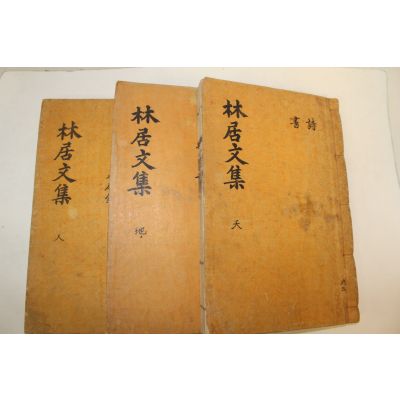 林居文集
天
詩
書
林居文集
地
林居文集
人